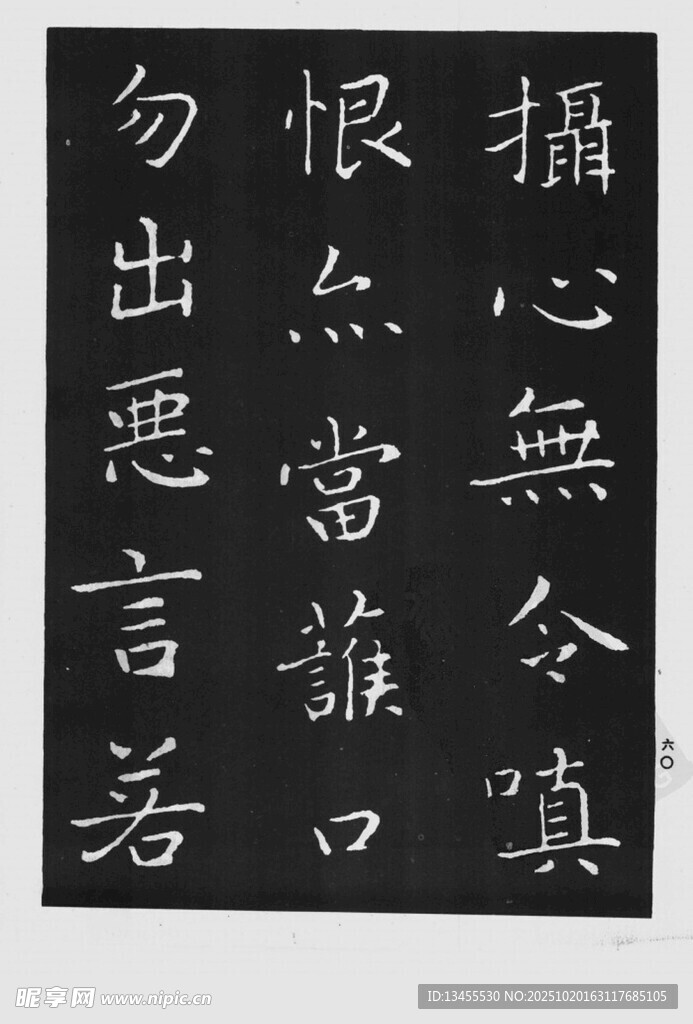 攝心無令嗔
恨亦當護口
勿出悪言若
六〇
昵享网 www.nipic.cn
ID:13455530 NO:20251020163117685105